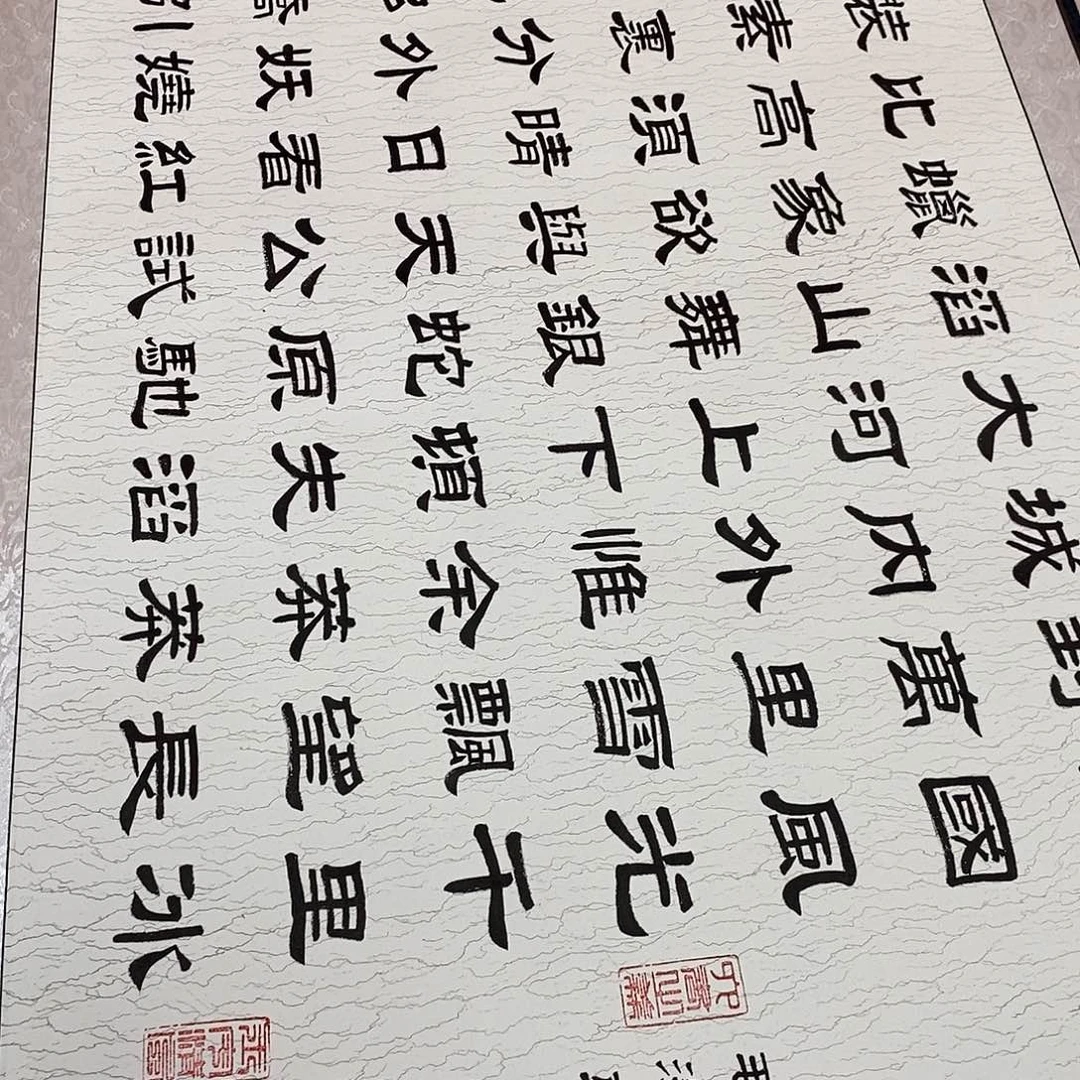 國風光千里冰
封萬里雪飄望長
城內外惟余莽莽
大河上下頓失滔
滔山舞銀蛇原馳
蠟象欲與天公試
比高須晴日看紅
裝素裹分外妖嬈
多嬌引
毛澤